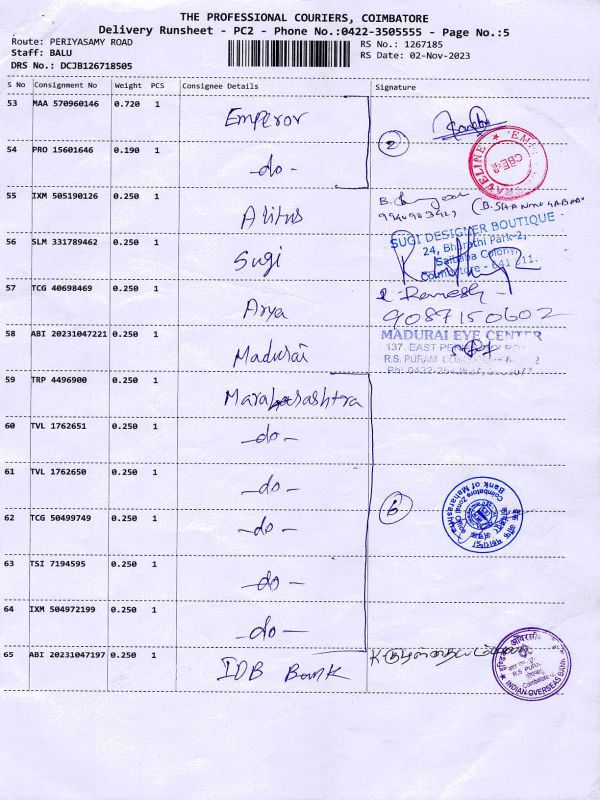 THE PROFESSIONAL COURIERS, COIMBATORE
Delivery Runsheet - PC2 - Phone No.:0422-3505555 - Page No.:5
Route: PERIYASAMY ROAD
RS No.: 1267185
Staff: BALU
RS Date: 02-Nov-2023
DRS No.: DCJB126718505
S No Consignment No Weight PCS Consignee Details Signature
53 MAA 570960146 0.720 1 Emperor
2
54 PRO 15601646 0.190 1 -do-
55 IXM 505190126 0.250 1 Alitus
(B. SHANMUGABABU
SUGI DESIGNER BOUTIQUE -
56 SLM 331789462 0.250 1 Sugi
24, Bharathi Park-2,
Saibaba Colony,
Coimbatore - 641 011.
57 TCG 40698469 0.250 1 Arya
Ramesh
9087150602
58 ABI 20231047221 0.250 1 Madurai
MADURAI EYE CENTER
137, EAST
R.S. PURAM
59 TRP 4496900 0.250 1 Maraharashtra
60 TVL 1762651 0.250 1 -do-
61 TVL 1762650 0.250 1 -do-
6
Bank of Maharashtra
Coimbatore Zonal Office
62 TCG 50499749 0.250 1 -do-
63 TSI 7194595 0.250 1 -do-
64 IXM 504972199 0.250 1 -do-
65 ABI 20231047197 0.250 1 IOB Bank
R.S PURAM
Coimbatore
INDIAN OVERSEAS BANK